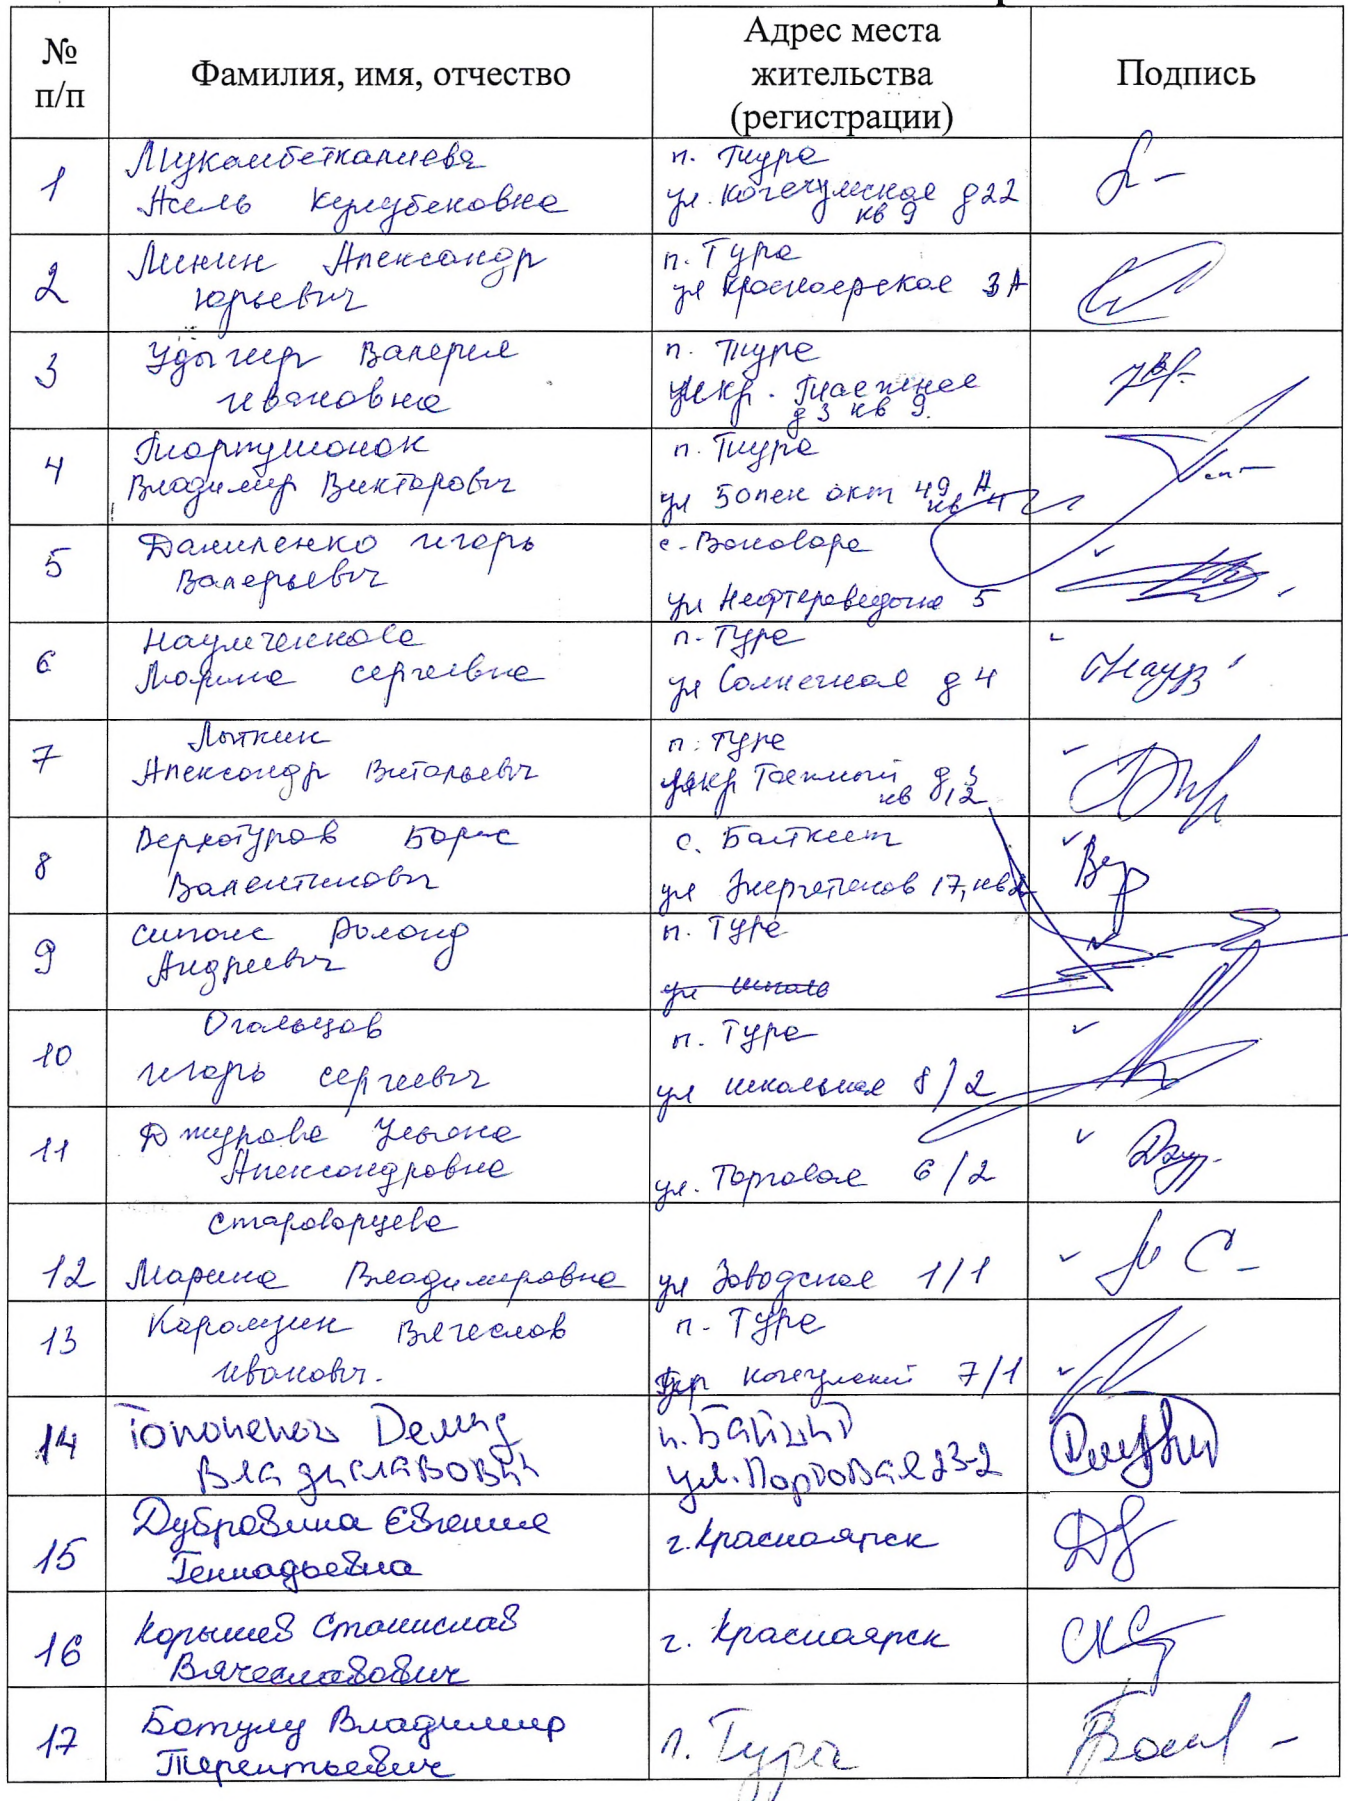 №
п/п
Фамилия, имя, отчество
Адрес места
жительства
(регистрации)
Подпись
1
Мукамбеткалиева
п. Тура
ул. Кочечумская д 22
кв 9
2
Линин Александр
Юрьевич
п. Тура
ул Красноярская 3А
3
Удыгир Валерия
Ивановна
п. Тура
мкр. Таежная
д 3 кв 9.
4
Владимир Викторович
п. Тура
ул 50 лен окт 49 А
кв 4
5
Даниленко Игорь
Валерьевич
с. Ванавара
ул Нефтеразведочна 5
6
Наумченкова
Марина Сергеевна
п. Тура
ул Солнечная д 4
7
Лыткин
Александр Витальевич
п. Тура
мкр Таежный д 3
кв 12
8
Верхотуров Борис
Валентинович
с. Байкит
ул Энергетиков 17, кв 2
9
Роланд
Андреевич
п. Тура
10
Огольцов
Игорь Сергеевич
п. Тура
ул Школьная 8/2
11
Джураева Ульяна
Александровна
ул. Торговая 6/2
12
Староварцева
Марина Владимировна
ул Заводская 1/1
13
Карамзин Вячеслав
Иванович.
п. Тура
Кочечумский 7/1
14
Демид
Владиславович
п. Байкит
ул. Портовая 23-2
15
Дубровина Евгения
Геннадьевна
г. Красноярск
16
Корышев Станислав
Вячеславович
г. Красноярск
17
Ботулу Владимир
Терентьевич
п. Тура